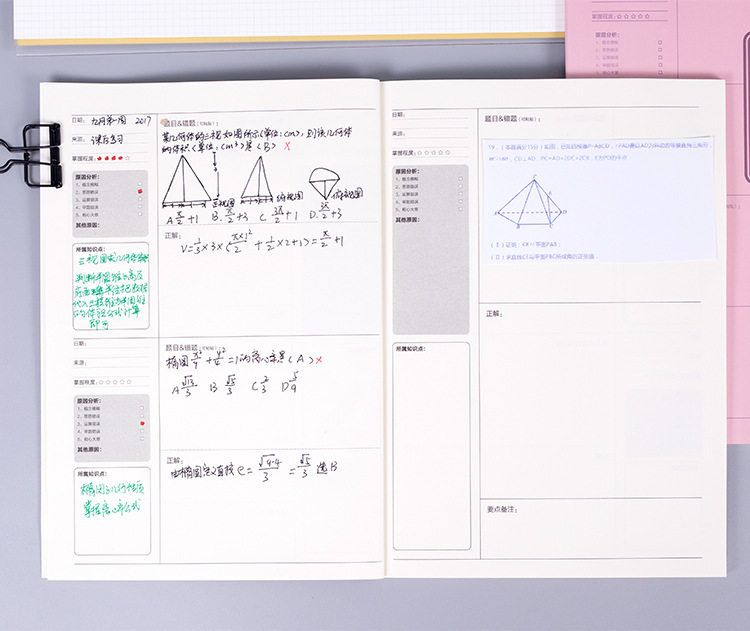 掌握程度:☆☆☆☆☆
原因分析:
1、概念模糊
2、思路错误
3、运算错误
4、审题错误
5、粗心大意
日期: 九月第一周 2017
来源: 课后练习
掌握程度:
原因分析:
1、概念模糊
2、思路错误
3、运算错误
4、审题错误
5、粗心大意
其他原因:
所属知识点:
三视图求几何体体积
即可
题目&错题(可粘贴):
某几何体的三视图如图所示(单位:cm),则该几何体
的体积(单位:cm³)是(B) ×
正视图 俯视图
A. π/2+1 B. π/2+3 C. 3π/2+1 D. 3π/2+3
正解:
V=1/3×3×(π×1²/2+1/2×2×1)=π/2+1
日期:
来源:
掌握程度:☆☆☆☆☆
原因分析:
1、概念模糊
2、思路错误
3、运算错误
4、审题错误
5、粗心大意
其他原因:
所属知识点:
椭圆的几何性质
掌握离心率公式
题目&错题(可粘贴):
椭圆x²/9+y²/4=1的离心率是(A) ×
A √13/3 B √5/3 C 2/3 D 5/9
正解:
由椭圆定义直接e=√9-4/3=√5/3 选B
日期:
来源:
掌握程度:☆☆☆☆☆
原因分析:
1、概念模糊
2、思路错误
3、运算错误
4、审题错误
5、粗心大意
其他原因:
所属知识点:
题目&错题(可粘贴):
19.(本题满分15分)如图,已知四棱锥P-ABCD,△PAD是以AD为斜边的等腰直角三角形,
BC∥AD,CD⊥AD,PC=AD=2DC=2CB,E为PD的中点.
P
E
A
B
C
D
(Ⅰ)证明:CE∥平面PAB;
(Ⅱ)求直线CE与平面PBC所成角的正弦值.
正解:
要点备注: